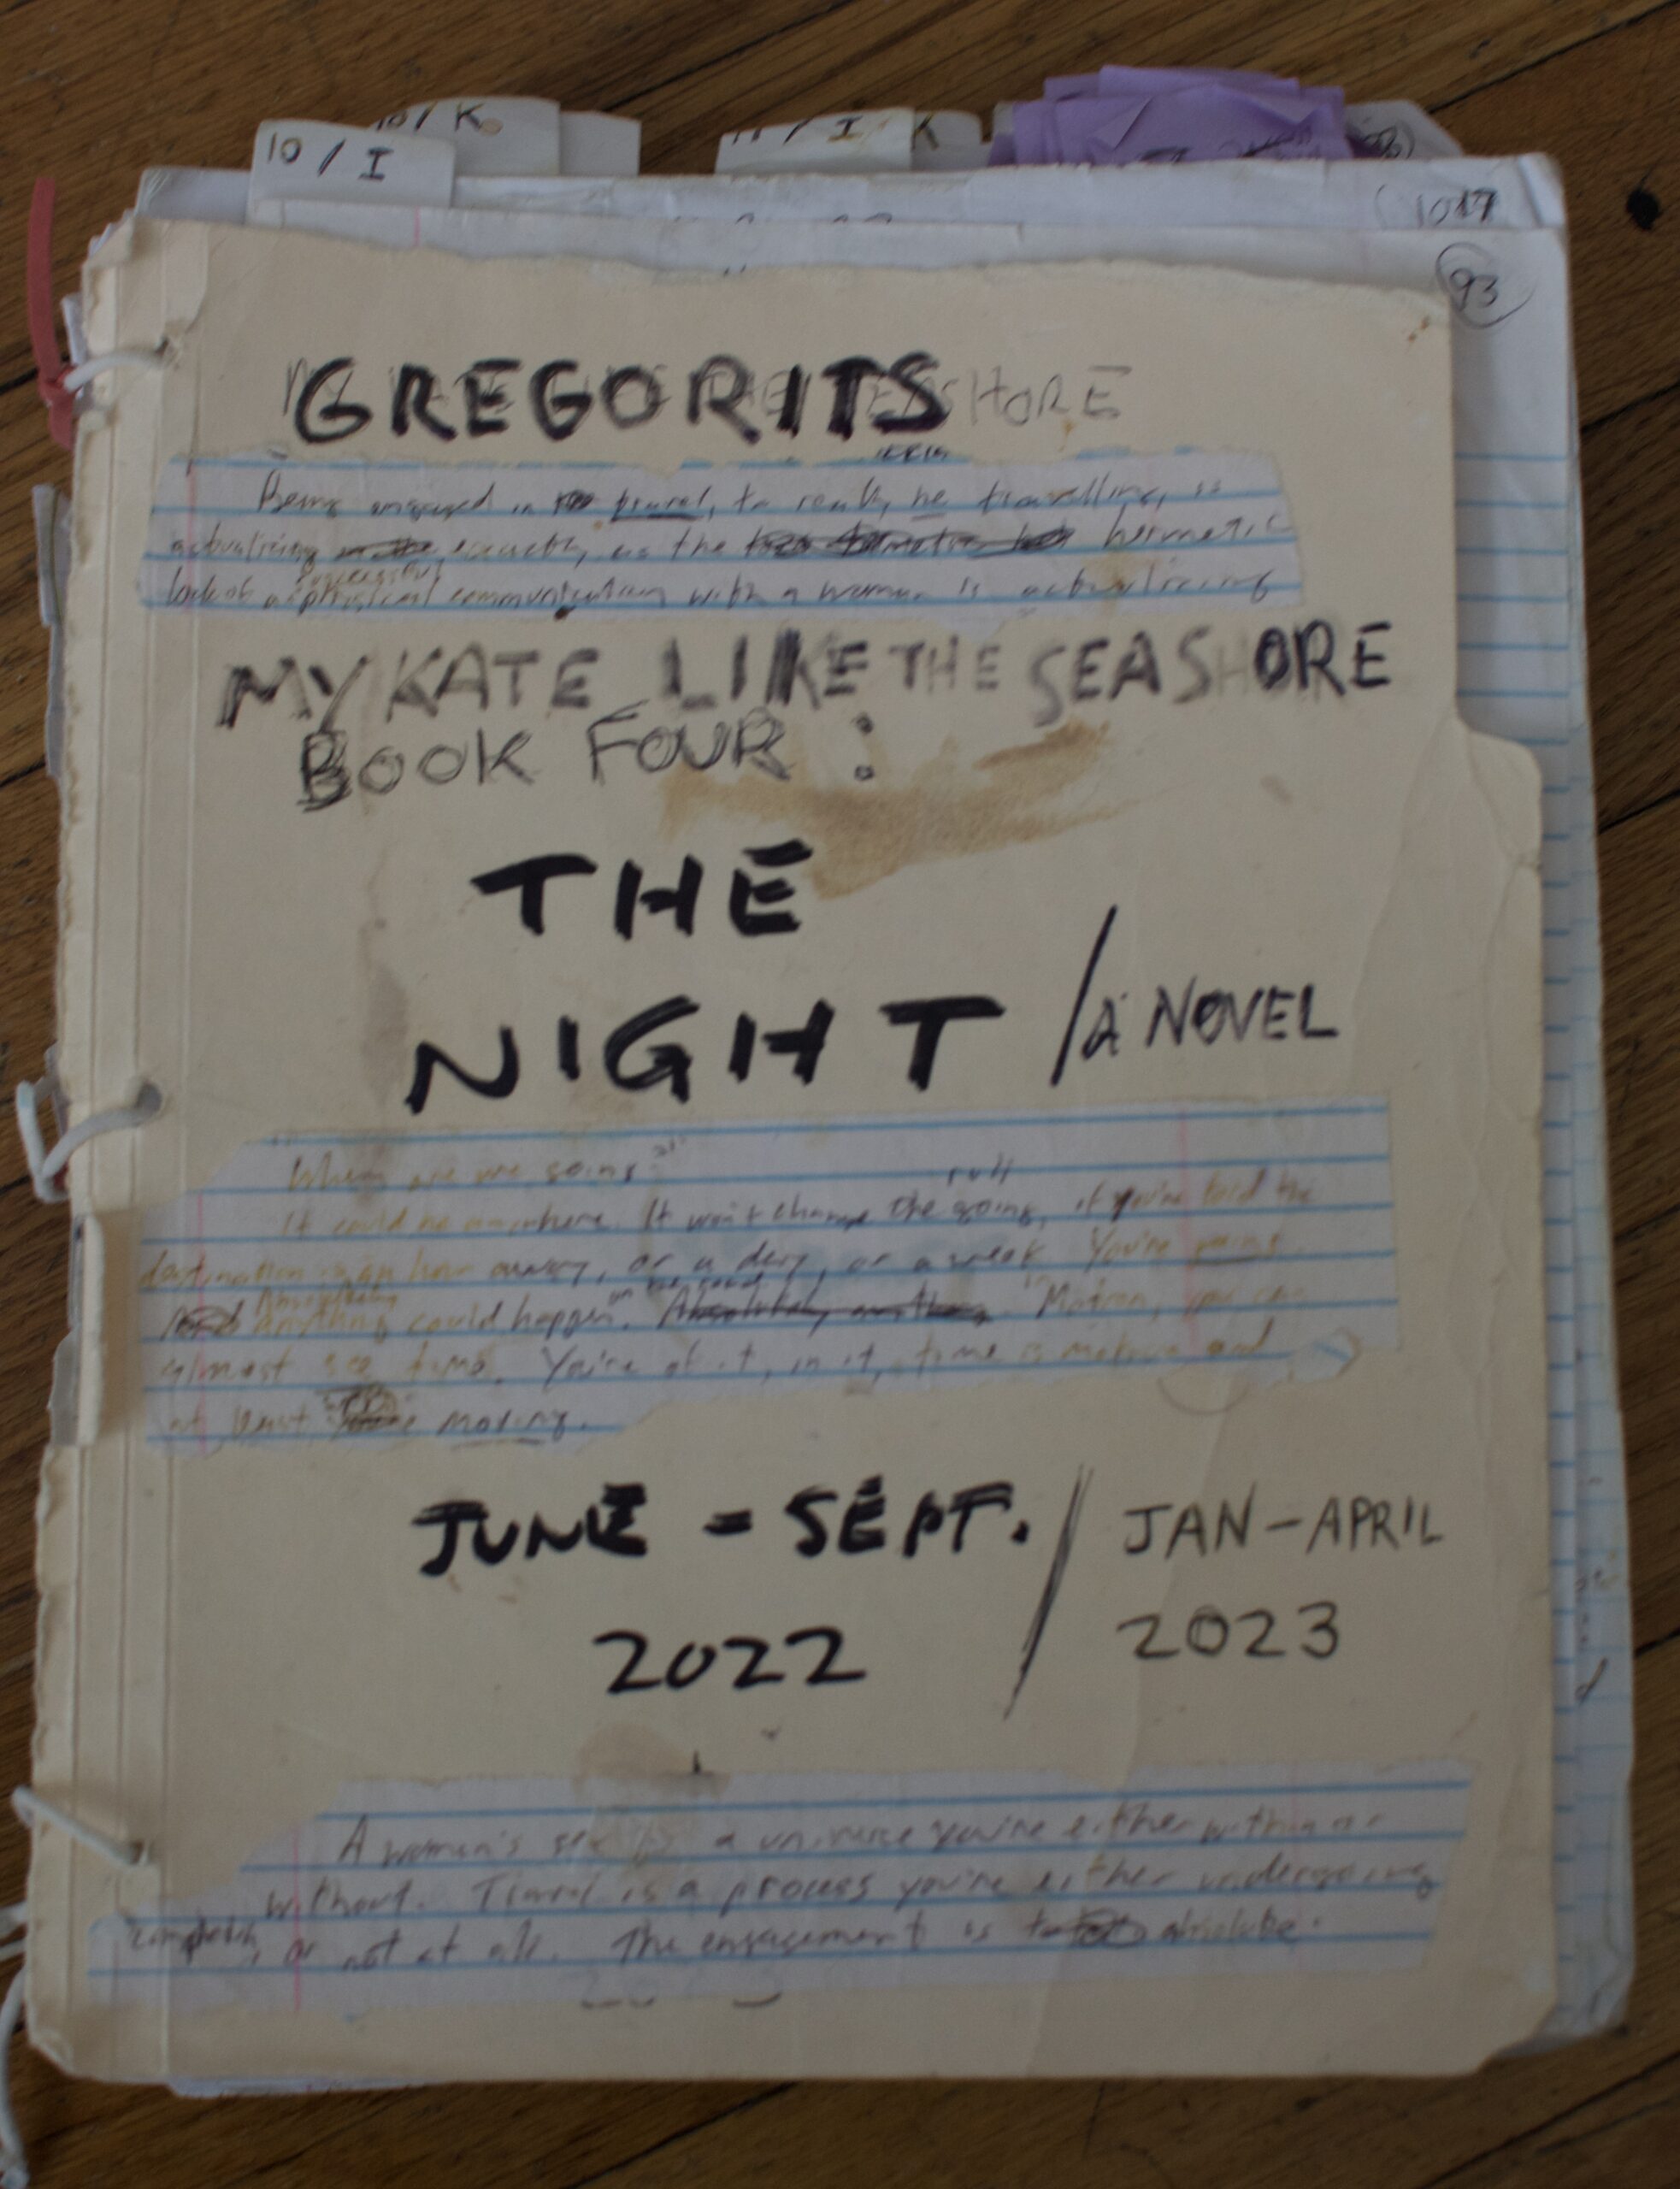 10 / K
10 / I
11 / I K
1017
93
GREGORITS
SHORE
Being engaged in travel, to really be travelling, is
actualizing exactly, as the hermetic
successful
lack of physical communication with a woman is actualizing
MY KATE LIKE THE SEASHORE
BOOK FOUR :
THE
NIGHT / A NOVEL
Where are we going
It could be anywhere. It won't change the going, if you're told the
destination is an hour away, or a day, or a week. You're going.
Absolutely
anything could happen. Absolutely anything. Motion, you can
almost see time. You're of it, in it, time is motion and
at least moving.
JUNE - SEPT. / JAN - APRIL
2022 2023
A woman's a universe you're either within or
without. Travel is a process you're either undergoing
completely, or not at all. The engagement is absolute.